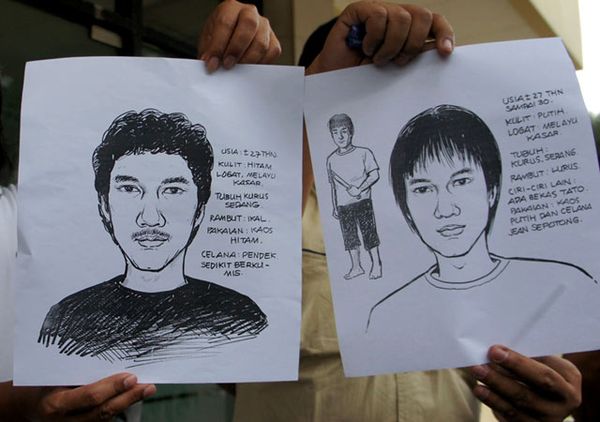 USIA : ± 27 THN.
KULIT : HITAM
LOGAT : MELAYU
KASAR.
TUBUH KURUS
SEDANG
RAMBUT : IKAL.
PAKAIAN : KAOS
HITAM.
CELANA : PENDEK
SEDIKIT BERKU-
MIS.
USIA ± 27 THN
SAMPAI 30.
KULIT : PUTIH
LOGAT : MELAYU
KASAR.
TUBUH :
KURUS. SEDANG.
RAMBUT : LURUS.
CIRI-CIRI LAIN :
ADA BEKAS TATO.
PAKAIAN : KAOS
PUTIH DAN CELANA
JEAN SEPOTONG.